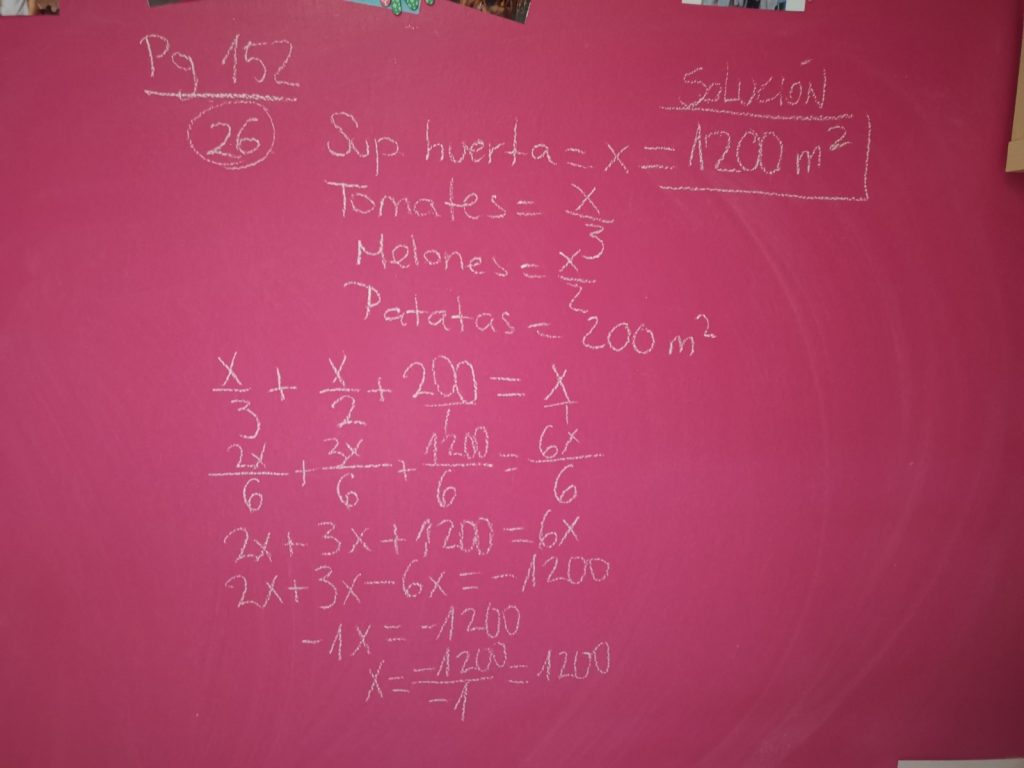 Pg 152
26
SOLUCIÓN
Sup. huerta = x = 1200 m²
Tomates = x/3
Melones = x/2
Patatas = 200 m²
x/3 + x/2 + 200/1 = x/1
2x/6 + 3x/6 + 1200/6 = 6x/6
2x + 3x + 1200 = 6x
2x + 3x - 6x = -1200
-1x = -1200
x = -1200/-1 = 1200